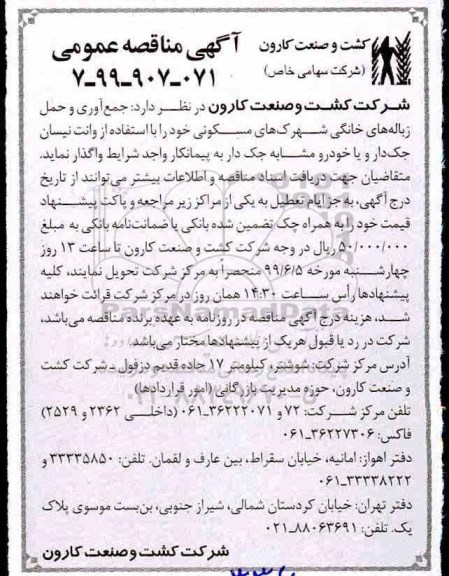 کشت و صنعت کارون
(شرکت سهامی خاص)
آگهی مناقصه عمومی
۷-۹۹-۹۰۷-۰۷۱
شرکت کشت و صنعت کارون در نظر دارد: جمع‌آوری و حمل
زباله‌های خانگی شهرک‌های مسکونی خود را با استفاده از وانت نیسان
جک‌دار و یا خودرو مشابه جک دار به پیمانکار واجد شرایط واگذار نماید.
متقاضیان جهت دریافت اسناد مناقصه و اطلاعات بیشتر می‌توانند از تاریخ
درج آگهی، به جز ایام تعطیل به یکی از مراکز زیر مراجعه و پاکت پیشنهاد
قیمت خود را به همراه چک تضمین شده بانکی یا ضمانت‌نامه بانکی به مبلغ
۵۰/۰۰۰/۰۰۰ ریال در وجه شرکت کشت و صنعت کارون تا ساعت ۱۳ روز
چهارشنبه مورخه ۹۹/۶/۵ منحصراً به مرکز شرکت تحویل نمایند، کلیه
پیشنهادها رأس ساعت ۱۴:۳۰ همان روز در مرکز شرکت قرائت خواهند
شد، هزینه درج آگهی مناقصه در روزنامه به عهده برنده مناقصه می‌باشد،
شرکت در رد یا قبول هریک از پیشنهادها مختار می‌باشد.
آدرس مرکز شرکت: شوشتر، کیلومتر ۱۷ جاده قدیم دزفول - شرکت کشت
و صنعت کارون، حوزه مدیریت بازرگانی (امور قراردادها)
تلفن مرکز شرکت: ۷۲ و ۳۶۲۲۲۰۷۱-۰۶۱ (داخلی ۲۳۶۲ و ۲۵۲۹)
فاکس: ۳۶۲۲۷۳۰۶-۰۶۱
دفتر اهواز: امانیه، خیابان سقراط، بین عارف و لقمان. تلفن: ۳۳۳۳۵۸۵۰ و
۳۳۳۳۸۲۲۲-۰۶۱
دفتر تهران: خیابان کردستان شمالی، شیراز جنوبی، بن‌بست موسوی پلاک
یک. تلفن: ۸۸۰۶۳۶۹۱-۰۲۱
شرکت کشت و صنعت کارون